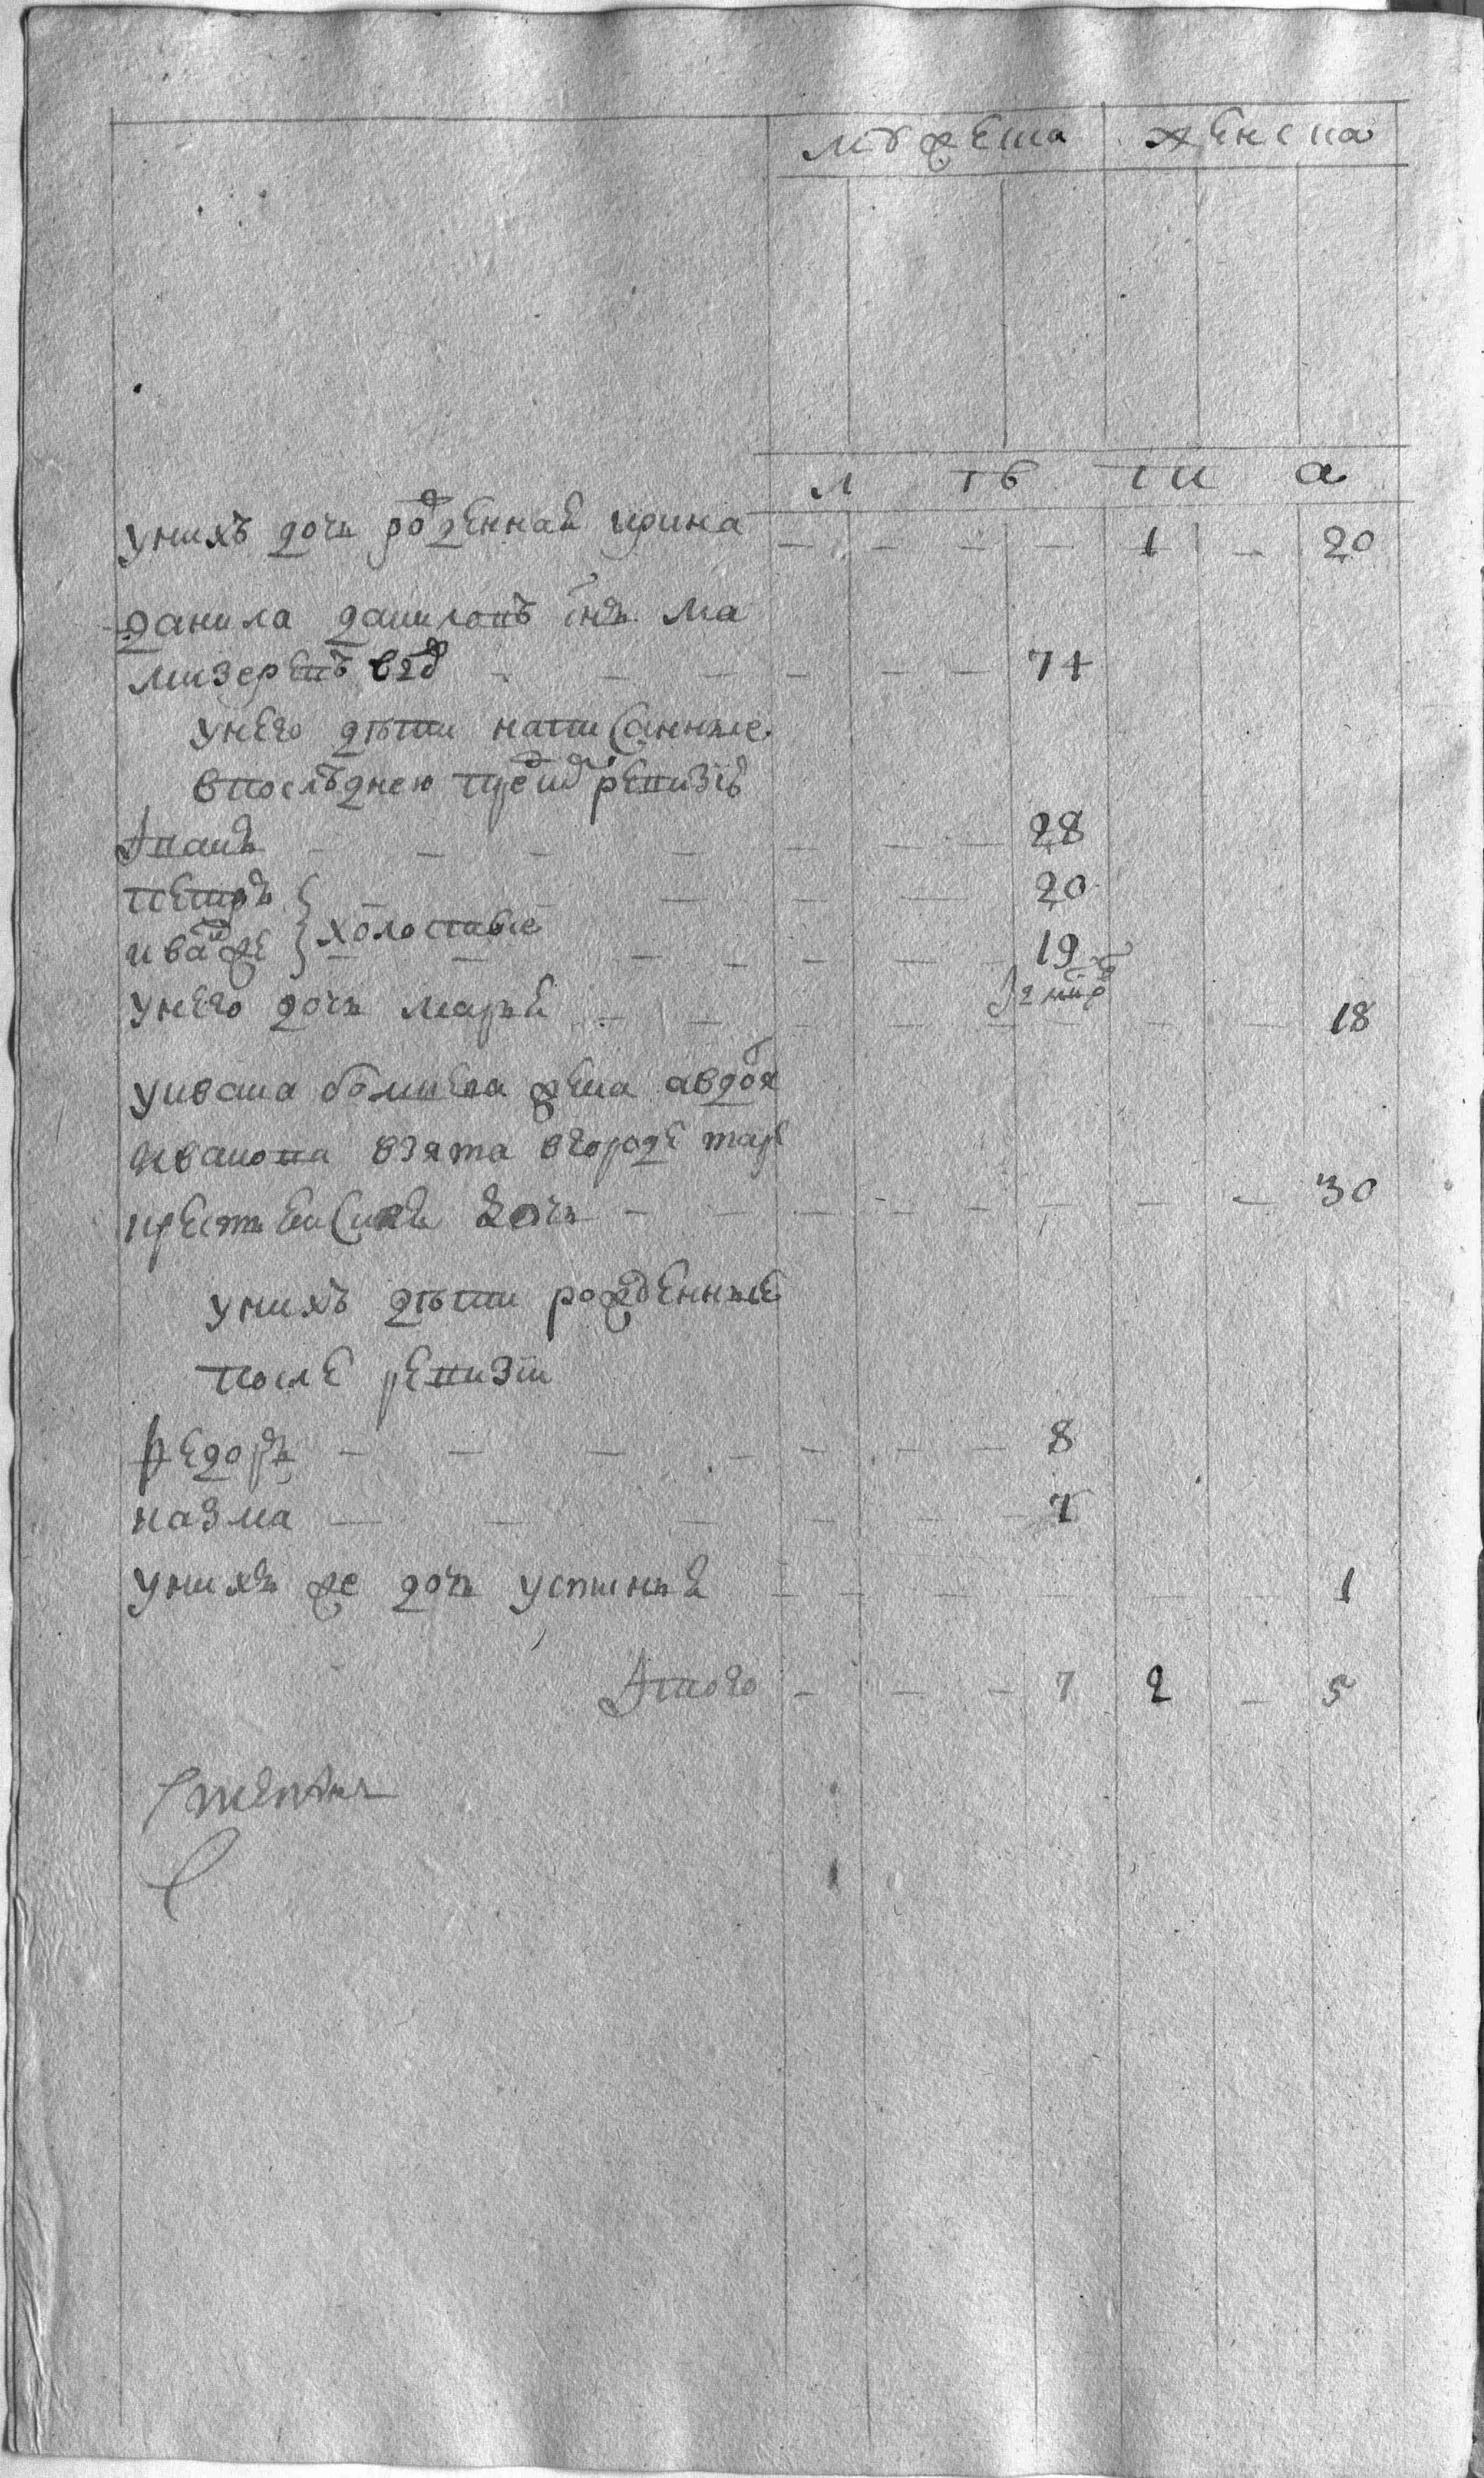 мужеска женска
л ѣ т а
у нихъ дочь рожденная ирина — — — — 1 — 20
данила даниловъ снъ ма
мизеревъ вдв — — — 74
у него дѣти написанные
в последнею пред ревизiю
Иванъ — — — 28
петръ } холостые — — — 20
иван же } — — — 19
у него дочь марья — — — 18
у ивана болшева жена авдотя
иванова взята в городе таре
крестьенская дочь — — — 30
у нихъ дѣти рожденные
после ревизiи
Федоръ — — — 8
казма — — — 7
у нихъ же дочь устинья — — — 1
Итого — — — 7 2 — 5